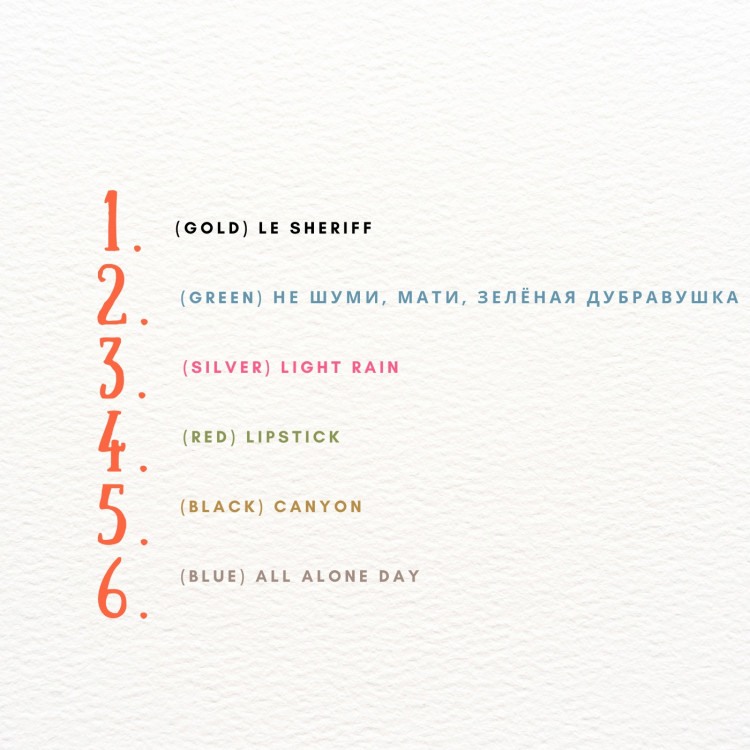 1. (GOLD) LE SHERIFF
2. (GREEN) НЕ ШУМИ, МАТИ, ЗЕЛЁНАЯ ДУБРАВУШКА
3. (SILVER) LIGHT RAIN
4. (RED) LIPSTICK
5. (BLACK) CANYON
6. (BLUE) ALL ALONE DAY